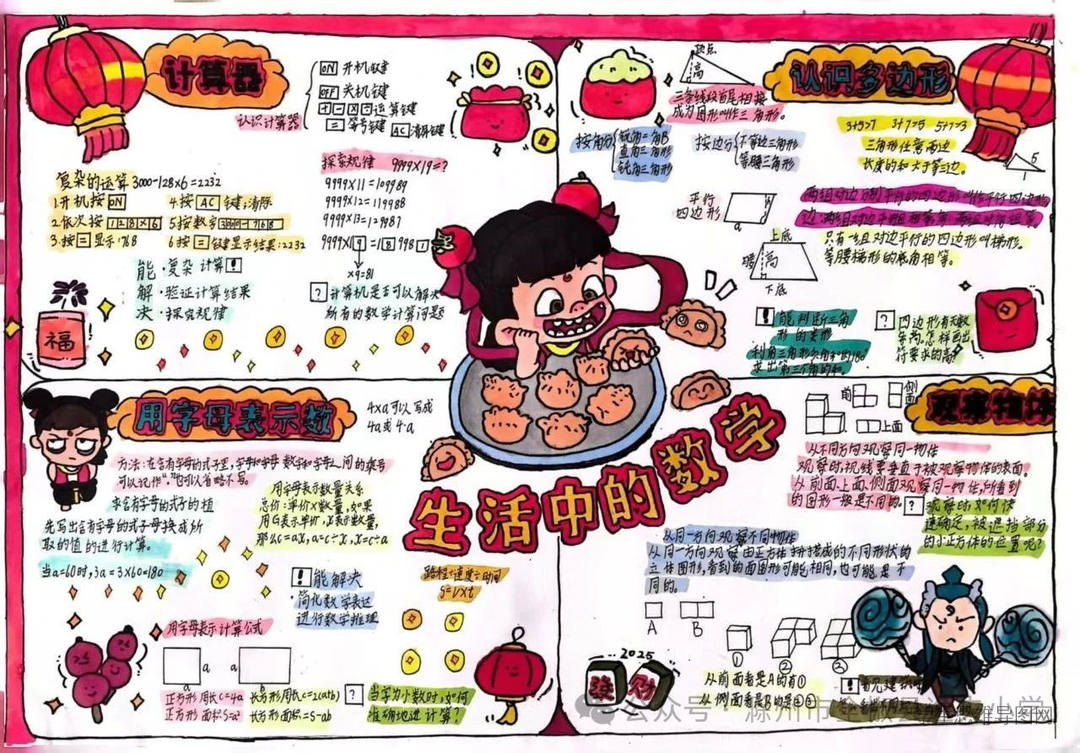 计算器
认识计算器
ON 开机键
OFF 关机键
+ - × ÷ 运算键
= 等号键 AC 清除键
复杂的运算 3000-128×6=2232
1.开机按 ON
2.依次按 128×6
3.按 = 显示:768
4.按 AC 键,清除
5.按数字 3000-768
6.按 = 键显示结果:2232
能 · 复杂计算 !
解 · 验证计算结果
决 · 探究规律
探索规律 9999×19=?
9999×11=109989
9999×12=119988
9999×9=81
? 计算机是否可以解决
所有的数学计算问题
福
顶点
高
三条线段首尾相接
成为图形叫作三角形。
按角分
直角三角形
钝角三角形
按边分
不等边三角形
等腰三角形
认识多边形
3+5>7 3+7>5 5+7>3
三角形任意两边
长度的和大于第三边。
平行
四边形
a
上底
高
腰
下底
两组对边分别平行的四边形叫作平行四边形
只有一组对边平行的四边形叫梯形。
等腰梯形的底角相等。
! 能判断三角
形的类形
利用三角形内角和的180
求出第三个角的和。
? 四边形有无数
条高,怎样画出
符要求的高?
用字母表示数
4×a可以写成
4a或4·a
方法:在含有字母的式子里,字母和字母 数字和字母之间的乘号
可以记作“·”也可以省略不写。
求含有字母的式子的值
先写出含有字母的式子母换成所
取的值的进行计算。
当a=60时,3a=3×60=180
用字母表示数量关系
总价:单价×数量,如果
用a表示单价,x表示数量,
那么c=ax,a=c÷x,x=c÷a
! 能解决
· 简化数学表达
进行数学推理
路程=速度×时间
s=v×t
用字母表示计算公式
a
a
b
正方形周长c=4a
正方形面积s=a²
长方形周长=2(a+b)
长方形面积=s=ab
? 当字为小数时,如何
准确地进计算?
生活中的数学
前
侧
上面
观察物体
从不同方向观察同一物体
观察时,视线要垂直于被观察物体的表面。
从前面,上面,侧面观察同一物体,所看到
的图形一般是不同的。
? 观察时,如何快
速确定,被遮挡部分
的小正方体的位置呢?
从同一方向观察不同物体
从同一方向观察由正方体拼搭成的不同形状的
立体图形,看到的面图形可能相同,也可能是不
同的。
A B
① ② ③
从前面看是A的有①
从侧面看是B的是②③
2025
发财
公众号